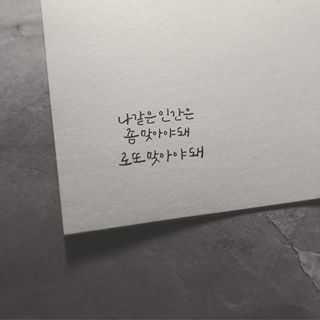 나같은 인간은
좀 맞아야돼
로또 맞아야돼